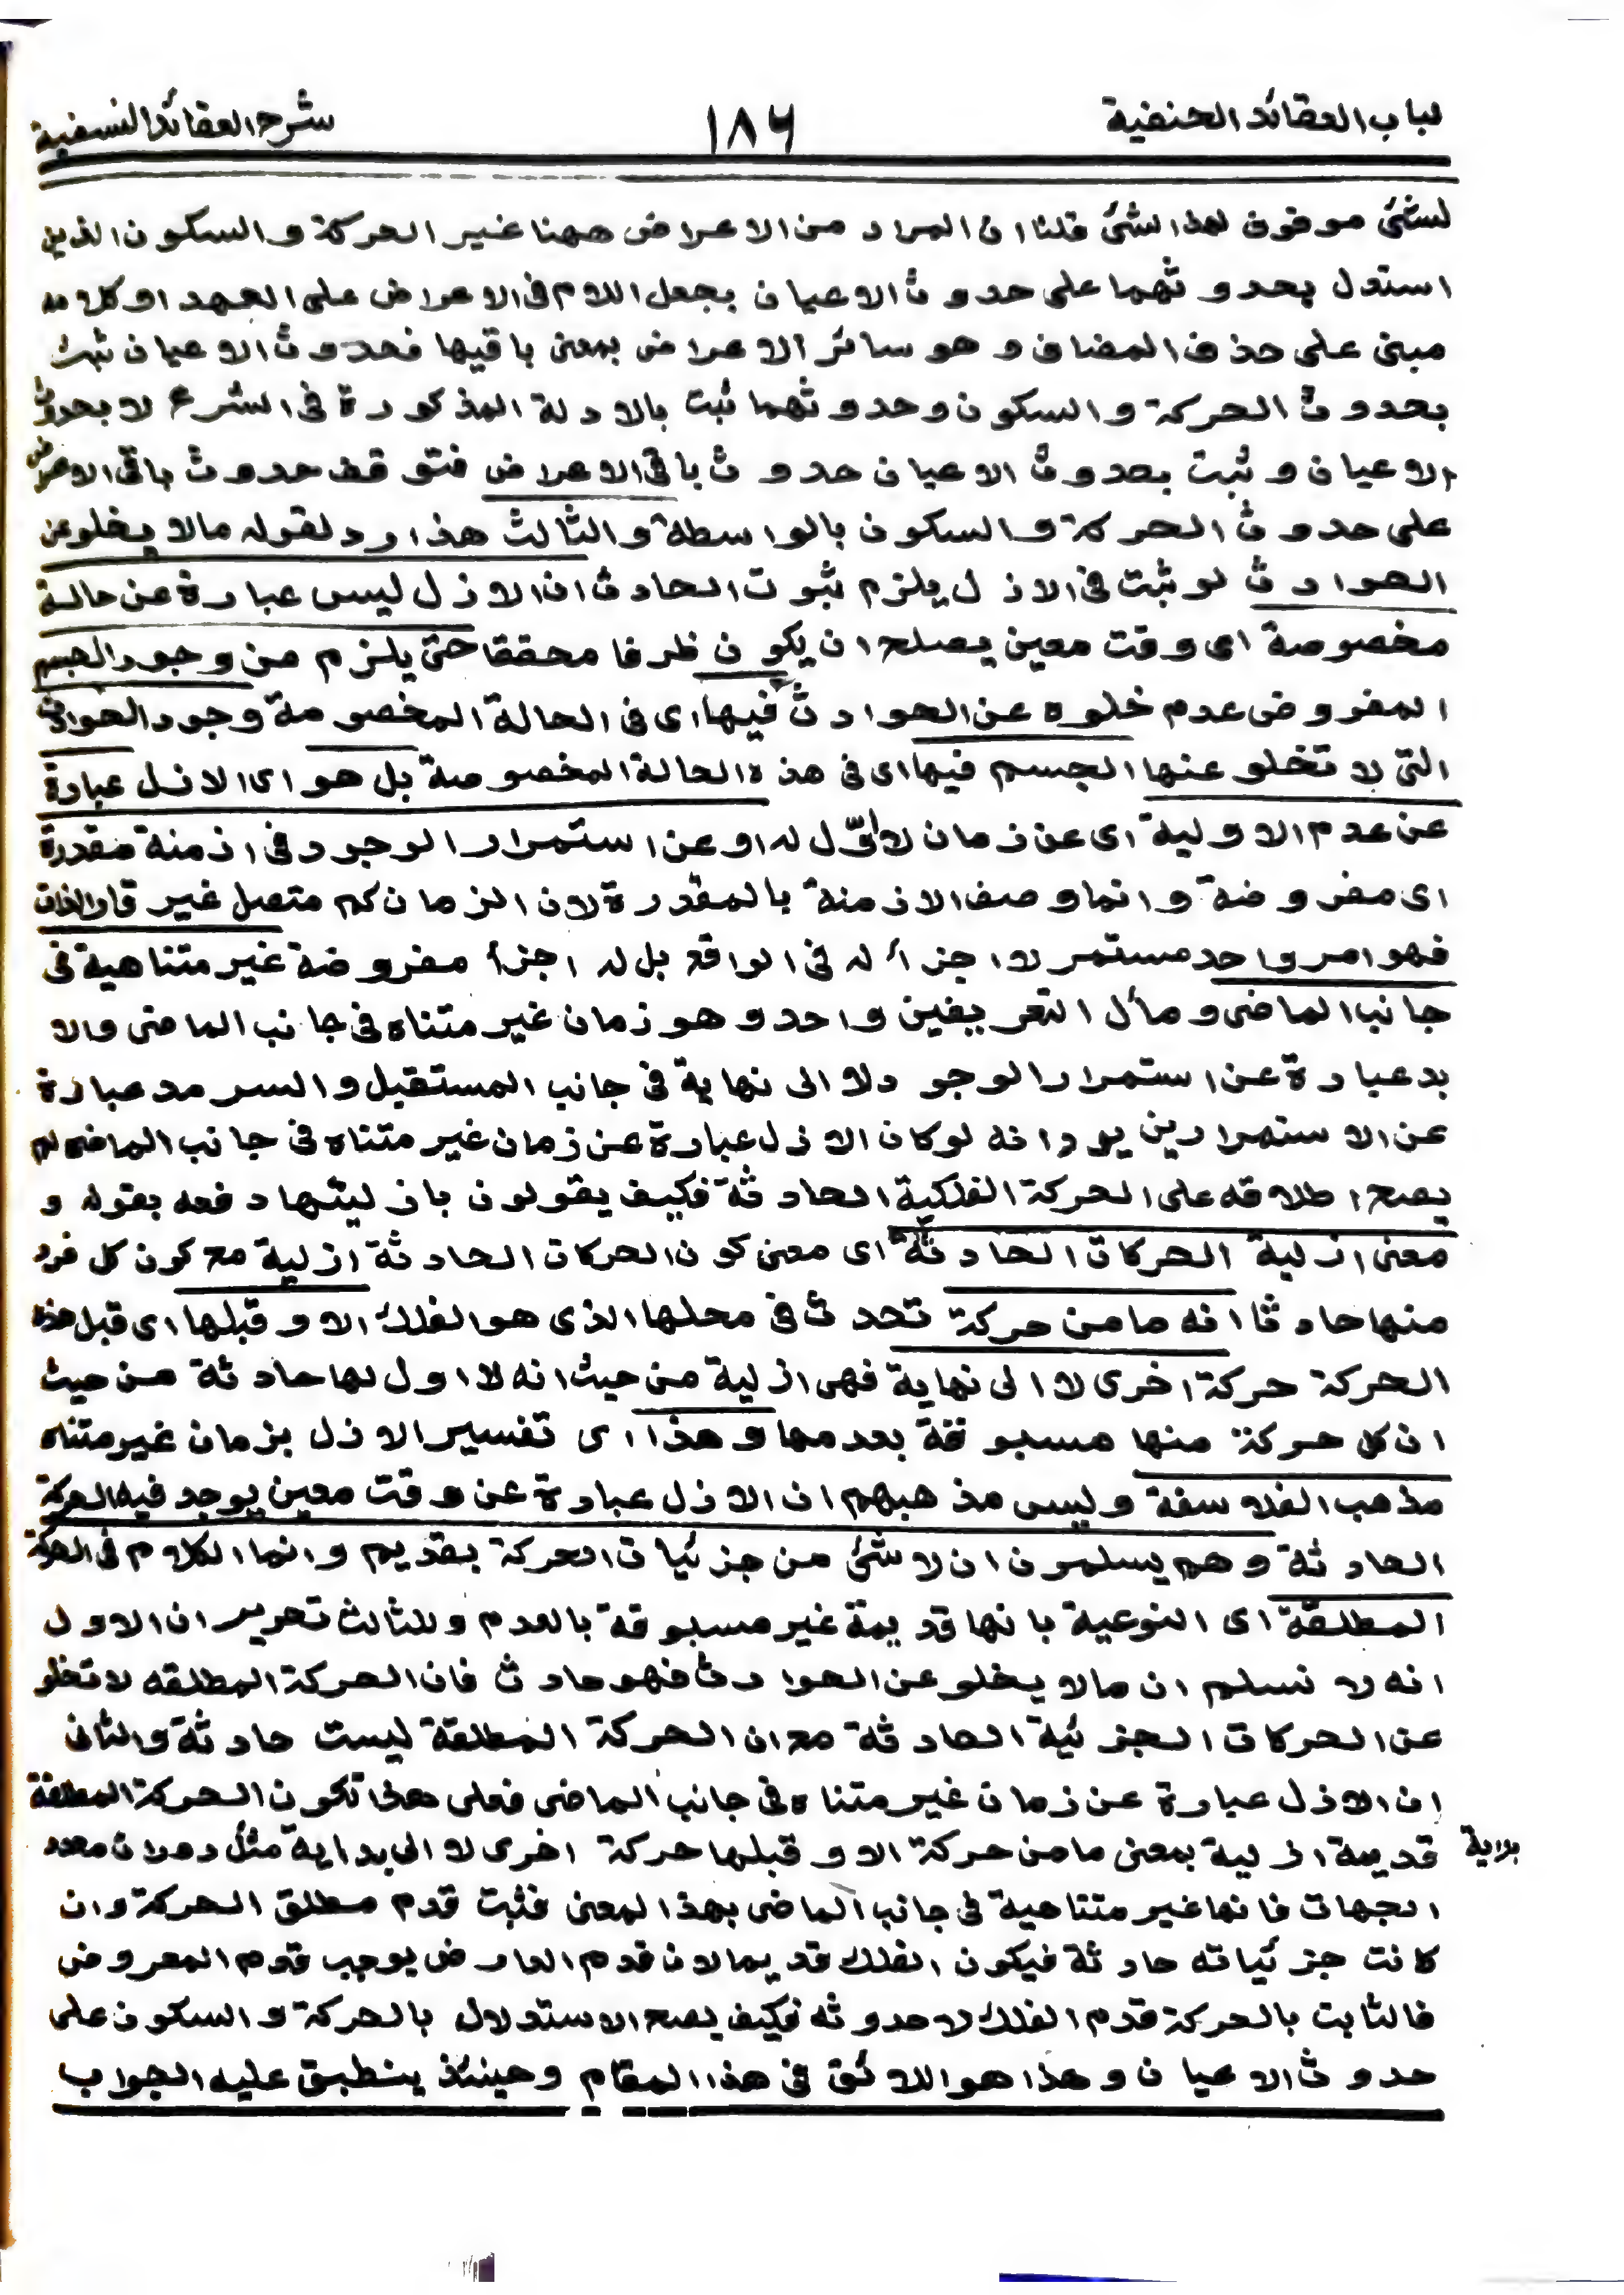 لباب العقائد الحنفية
١٨٦
شرح العقائد النسفية
لشئ موقوف لهذا الشئ قلنا ان المراد من الاعراض ههنا غير الحركة والسكون الذين
استدل بحدوثهما على حدوث الاعيان بجعل اللام فى الاعراض على العهد او كلامه
مبنى على حذف المضاف وهو سائر الاعراض بمعنى باقيها فحدوث الاعيان ثبت
بحدوث الحركة والسكون وحدوثهما ثبت بالادلة المذكورة فى الشرع لا بحدوث
الاعيان وثبت بحدوث الاعيان حدوث باقى الاعراض فتوقف حدوث باقى الاعراض
على حدوث الحركة والسكون بالواسطة والثالث هذا رد لقوله مالا يخلو عن
الحوادث لو ثبت فى الازل يلزم ثبوت الحادث ان الازل ليس عبارة عن حالة
مخصوصة اى وقت معين يصلح ان يكون ظرفا محققا حتى يلزم من وجود الجسم
المفروض عدم خلوه عن الحوادث فيها اى فى الحالة المخصوصة وجود الحوادث
التى لا تخلو عنها الجسم فيها اى فى هذه الحالة المخصوصة بل هو اى الازل عبارة
عن عدم الاولية اى عن زمان لا اوّل له او عن استمرار الوجود فى ازمنة مقدرة
اى مفروضة وانما وصف الازمنة بالمقدرة لان الزمان كم متصل غير قار الذات
فهو امر واحد مستمر لا اجزأ له فى الواقع بل له اجزأ مفروضة غير متناهية فى
جانب الماضى ومأل التعريفين واحد وهو زمان غير متناه فى جانب الماضى والا
بد عبارة عن استمرار الوجود لا الى نهاية فى جانب المستقبل والسرمد عبارة
عن الاستمرارين يرد انه لو كان الازل عبارة عن زمان غير متناه فى جانب الماضى لم
يصح اطلاقه على الحركة الفلكية الحادثة فكيف يقولون بازليتها دفعه بقوله و
معنى ازلية الحركات الحادثة اى معنى كون الحركات الحادثة ازلية مع كون كل فرد
منها حادثا انه ما من حركة تحدث فى محلها الذى هو الفلك الا وقبلها اى قبل هذه
الحركة حركة اخرى لا الى نهاية فهى ازلية من حيث انه لا اول لها حادثة من حيث
ان كل حركة منها مسبوقة بعدمها وهذا اى تفسير الازل بزمان غير متناه
مذهب الفلاسفة وليس مذهبهم ان الازل عبارة عن وقت معين يوجد فيه الحركة
الحادثة وهم يسلمون ان لا شئ من جزئيات الحركة بقديم وانما الكلام فى الحركة
المطلقة اى النوعية بانها قديمة غير مسبوقة بالعدم وللثالث تحريران الاول
انه لا نسلم ان مالا يخلو عن الحوادث فهو حادث فان الحركة المطلقه لا تخلو
عن الحركات الجزئية الحادثة مع ان الحركة المطلقة ليست حادثة والثانى
ان الازل عبارة عن زمان غير متناه فى جانب الماضى فعلى هذا تكون الحركة المطلقة
قديمة ازلية بمعنى ما من حركة الا وقبلها حركة اخرى لا الى بداية مثل دورات محدد
بداية
الجهات فانها غير متناهية فى جانب الماضى بهذا المعنى فثبت قدم مطلق الحركة وان
كانت جزئياته حادثة فيكون الفلك قديما لان قدم العارض يوجب قدم المعروض
فالثابت بالحركة قدم الفلك لا حدوثه فكيف يصح الاستدلال بالحركة والسكون على
حدوث الاعيان وهذا هو اللائق فى هذا المقام وحينئذ ينطبق عليه الجواب